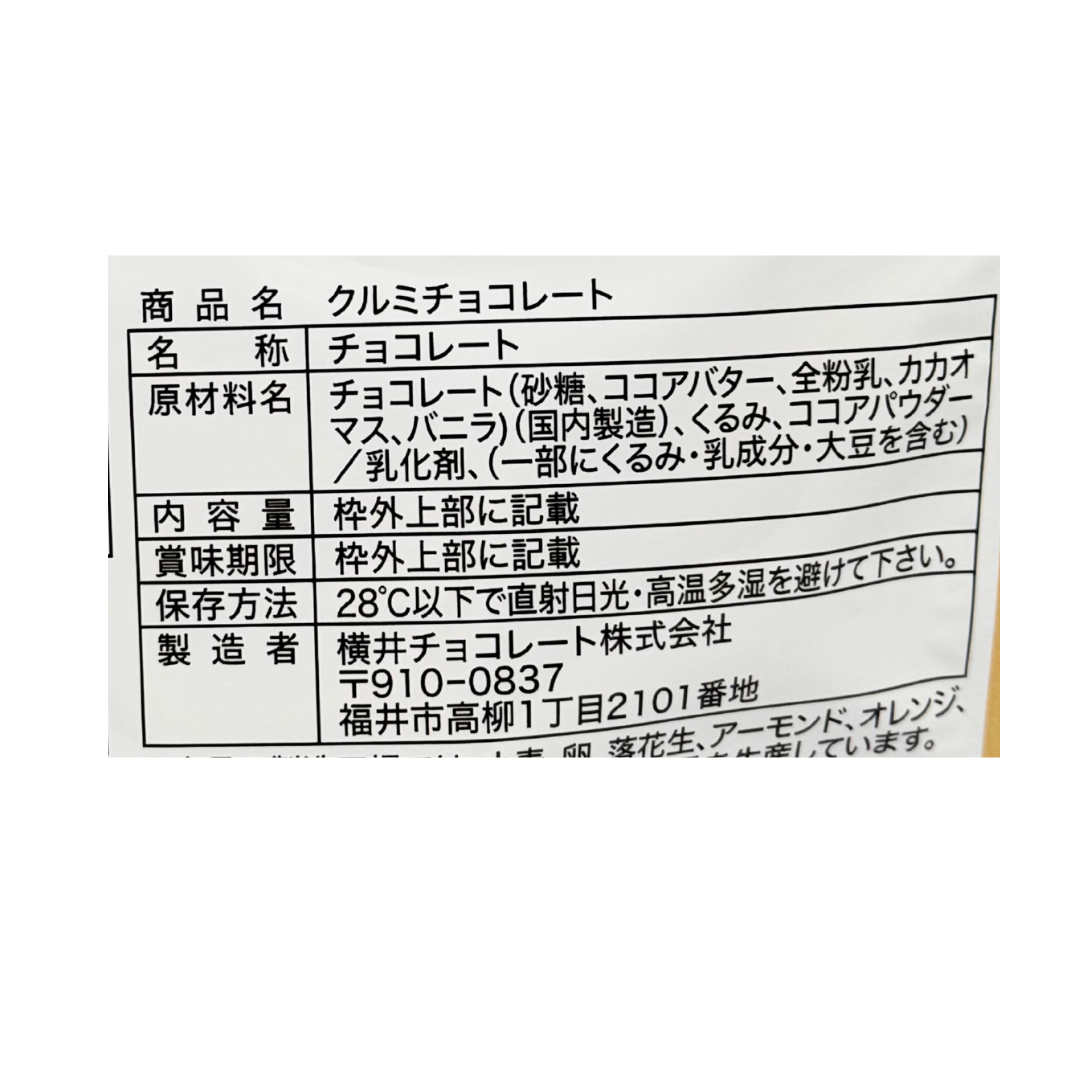 商品名 クルミチョコレート
名称 チョコレート
原材料名 チョコレート(砂糖、ココアバター、全粉乳、カカオ
マス、バニラ)(国内製造)、くるみ、ココアパウダー
/乳化剤、(一部にくるみ・乳成分・大豆を含む)
内容量 枠外上部に記載
賞味期限 枠外上部に記載
保存方法 28℃以下で直射日光・高温多湿を避けて下さい。
製造者 横井チョコレート株式会社
〒910-0837
福井市高柳1丁目2101番地
卵、落花生、アーモンド、オレンジ、
生産しています。